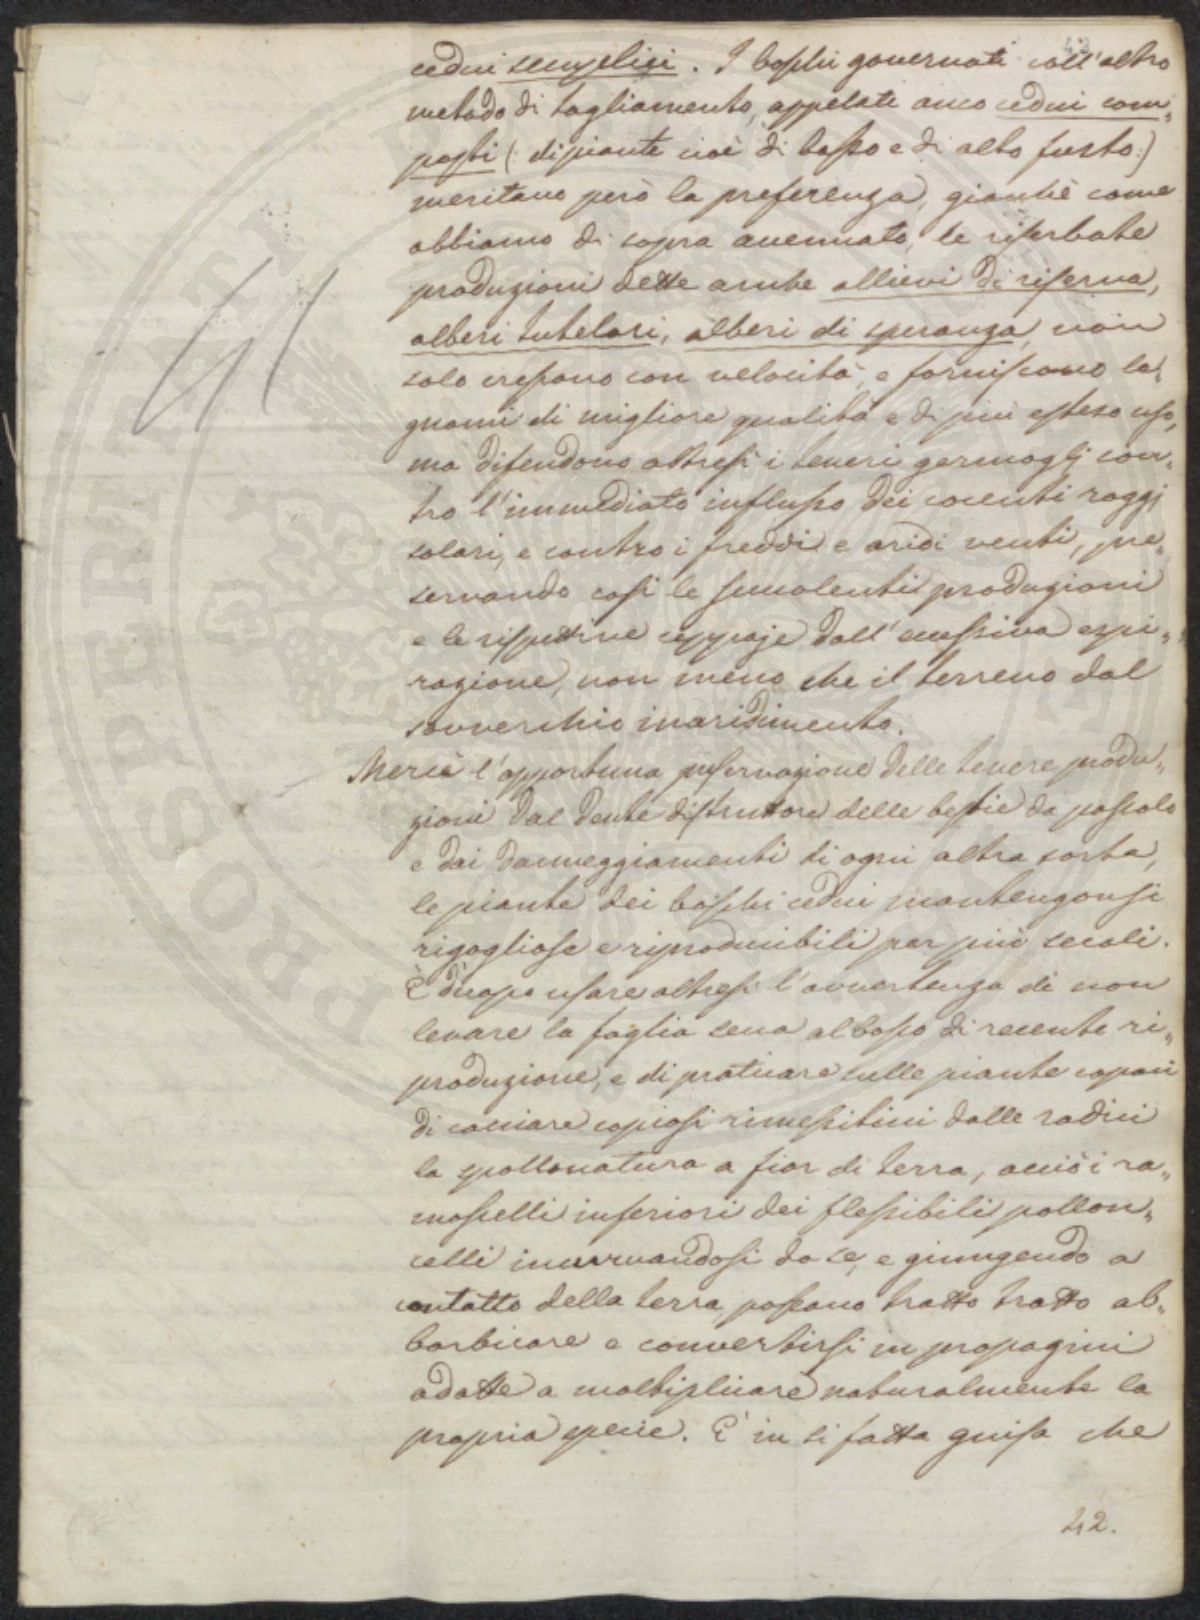 42
cedui semplici. I boschi governati coll'altro
metodo di tagliamento, appelati anco cedui com„
posti (: di piante cioè di basso e di alto fusto:)
meritano però la preferenza, giacchè come
abbiamo di sopra accennato, le riserbate
produzioni dette anche allievi di riserva,
alberi tutelari, alberi di speranza, non
solo crescono con velocità, e forniscono le„
gnami di migliore qualità e di più esteso uso,
ma difendono altresì i teneri germoglj con„
tro l'immediato influsso dei cocenti raggj
solari, e contro i freddi e aridi venti, pre„
servando così le succolenti produzioni
e le rispettive ceppaje dall'eccessiva espi„
razione, non meno che il terreno dal
sovverchio inaridimento.
Mercè l'opportuna preservazione delle tenere produ„
zioni dal dente distruttore delle bestie da pascolo
e dai danneggiamenti di ogni altra sorta,
le piante dei boschi cedui mantengonsi
rigogliose e riproducibili per più secoli.
È d'uopo usare altresì l'avvertenza di non
levare la foglia secca al bosco di recente ri„
produzione, e di praticare sulle piante capaci
di cacciare copiosi rimessiticci dalle radici
la spollonatura a fior di terra, acciò i ra„
moscelli inferiori dei flessibili pollon„
celli incurvandosi da se, e giungendo a
contatto della terra, possano tratto tratto ab„
barbicare e convertirsi in propagini
adatte a moltiplicare naturalmente la
propria specie. È in sì fatta guisa che
42.
PROSPERITATI